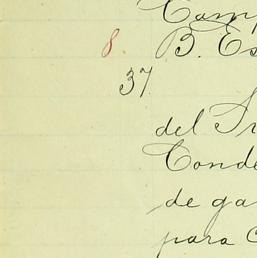 Camp
8. B. Es
37
del Sr
Conde
de ga
para C